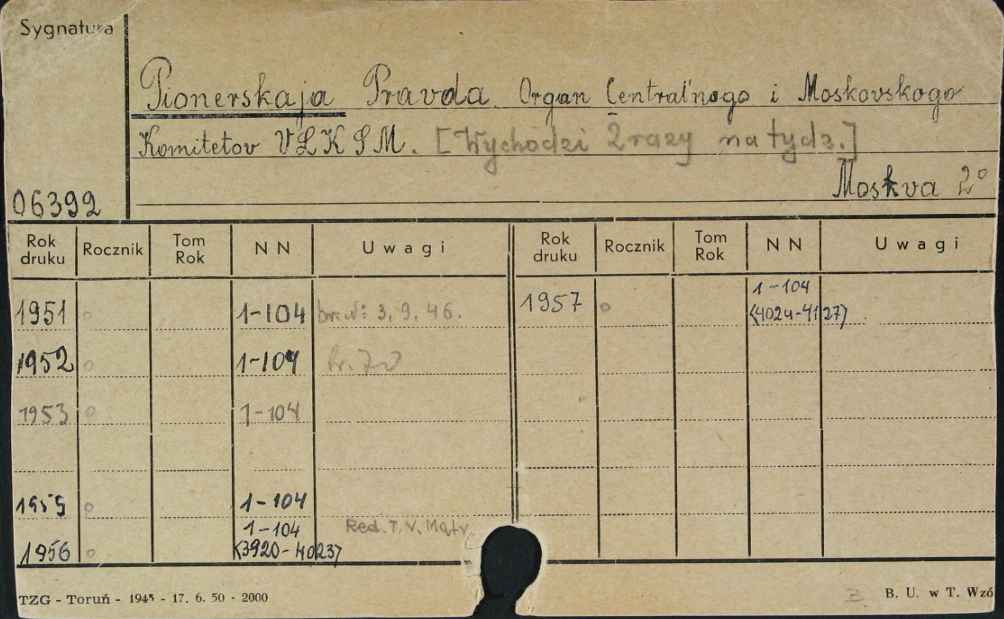 Sygnatura
Pionerskaja Pravda. Organ Central'nogo i Moskovskogo
Komitetov VLKSM. [Wychodzi 2 razy na tydz.]
Moskva 2°
06392
Rok druku Rocznik Tom Rok NN Uwagi Rok druku Rocznik Tom Rok NN Uwagi
1951 ° 1-104 br. N: 3, 9, 46. 1957 ° 1-104 <4024-4127>
1952 ° 1-104 br. 70
1953 ° 1-104
1955 ° 1-104
1956 ° 1-104 <3920-4023> Red. T. V. Matv
TZG - Toruń - 1945 - 17. 6. 50 - 2000
B. U. w T. Wzó